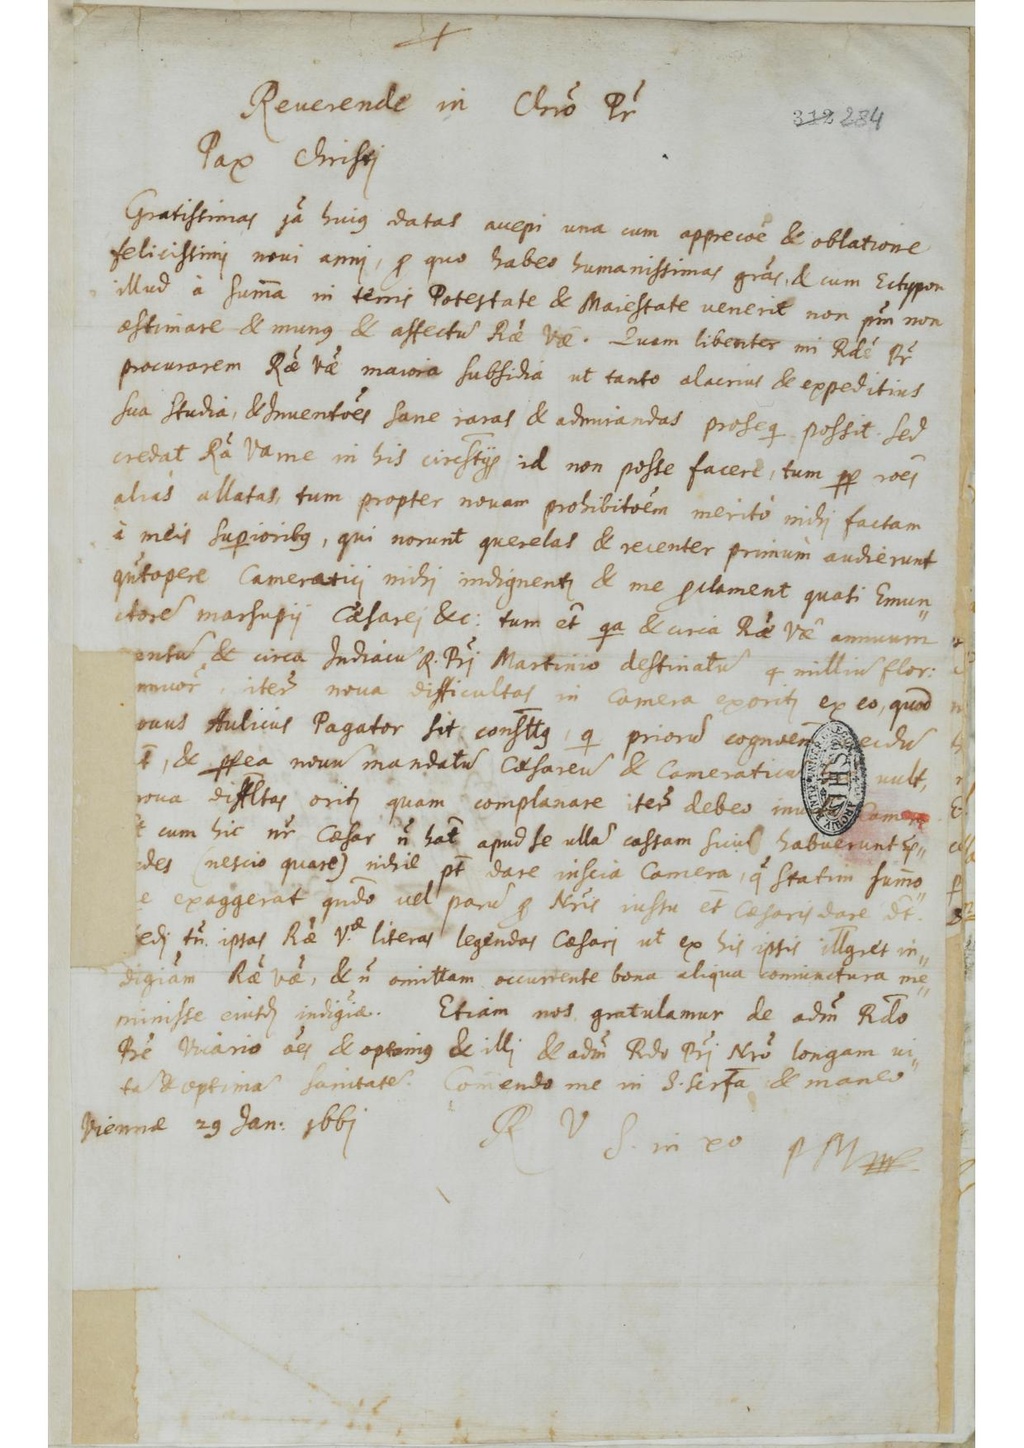 Reuerende in Chrõ Pr̃
312 284
Pax Christj
Gratissimas jã huiꝰ datas accepi una cum apprecõe & oblatione
felicissimj noui annj, ꝓ quo habeo humanissimas grãs, & cum Ectypon
illud à summa in terris Potestate & Maiestate venerit non non
æstimare & munꝰ & affectũ Ræ̃ Væ̃. Quam libenter mi Rdẽ Pr̃
procurarem Ræ̃ Væ̃ maiora subsidia ut tanto alacrius & expeditius
sua studia, & Inventões sane raras & admirandas proseq possit. Sed
credat Rã Va me in his id non posse facere, tum rões
aliàs allatas, tum propter nouam prohibitõem meritò mihj factam
à meis Superioribꝰ, qui norunt querelas & recenter primùm audierunt
qtopere Cameraticj mihj indignent & me ꝓclament quasi Emun„
ctorẽ marsupij Cæsarej &c: tum et̃ & circa Ræ̃ Væ̃ annuum
& circa Indiacũ R. Prj Martinio destinatũ 4 milliũ flor:
iterũ noua difficultas in Camera exorit ex eo, quod
Aulicus Pagator sit q priorũ
& noũu mandatũ Cæsareũ & Cameraticũ vult,
oua diffltas orit, quam complanare iterũ debeo
cum hic nr̃ Cæsar ñ hãt apud se ullã cassam sicut habuerunt
edes (nescio quare) nihil pt̃ dare inscia Camera, q̃ statim summo„
e exaggerat qndõ vel parũ ꝓ Nr̃is iussu et̃ Cæsaris dare
tñ. ipsas Ræ̃ V.æ literas legendas Cæsarj ut ex his ipsis in„
digiãm Ræ̃ Væ̃, & ñ omittam occurrente bona aliqua coniunctura me„
minisse indigiæ. Etiam nos gratulamur de adm̃ Rdo
Prẽ Vicario & & illj & adm̃ Rdo Prj Nrõ longam ui„
tã & optimã sanitatẽ. Comẽndo me in S. Scrfa & maneo
Viennæ 29 Jan: 1661
R V
S. in xo
IHS